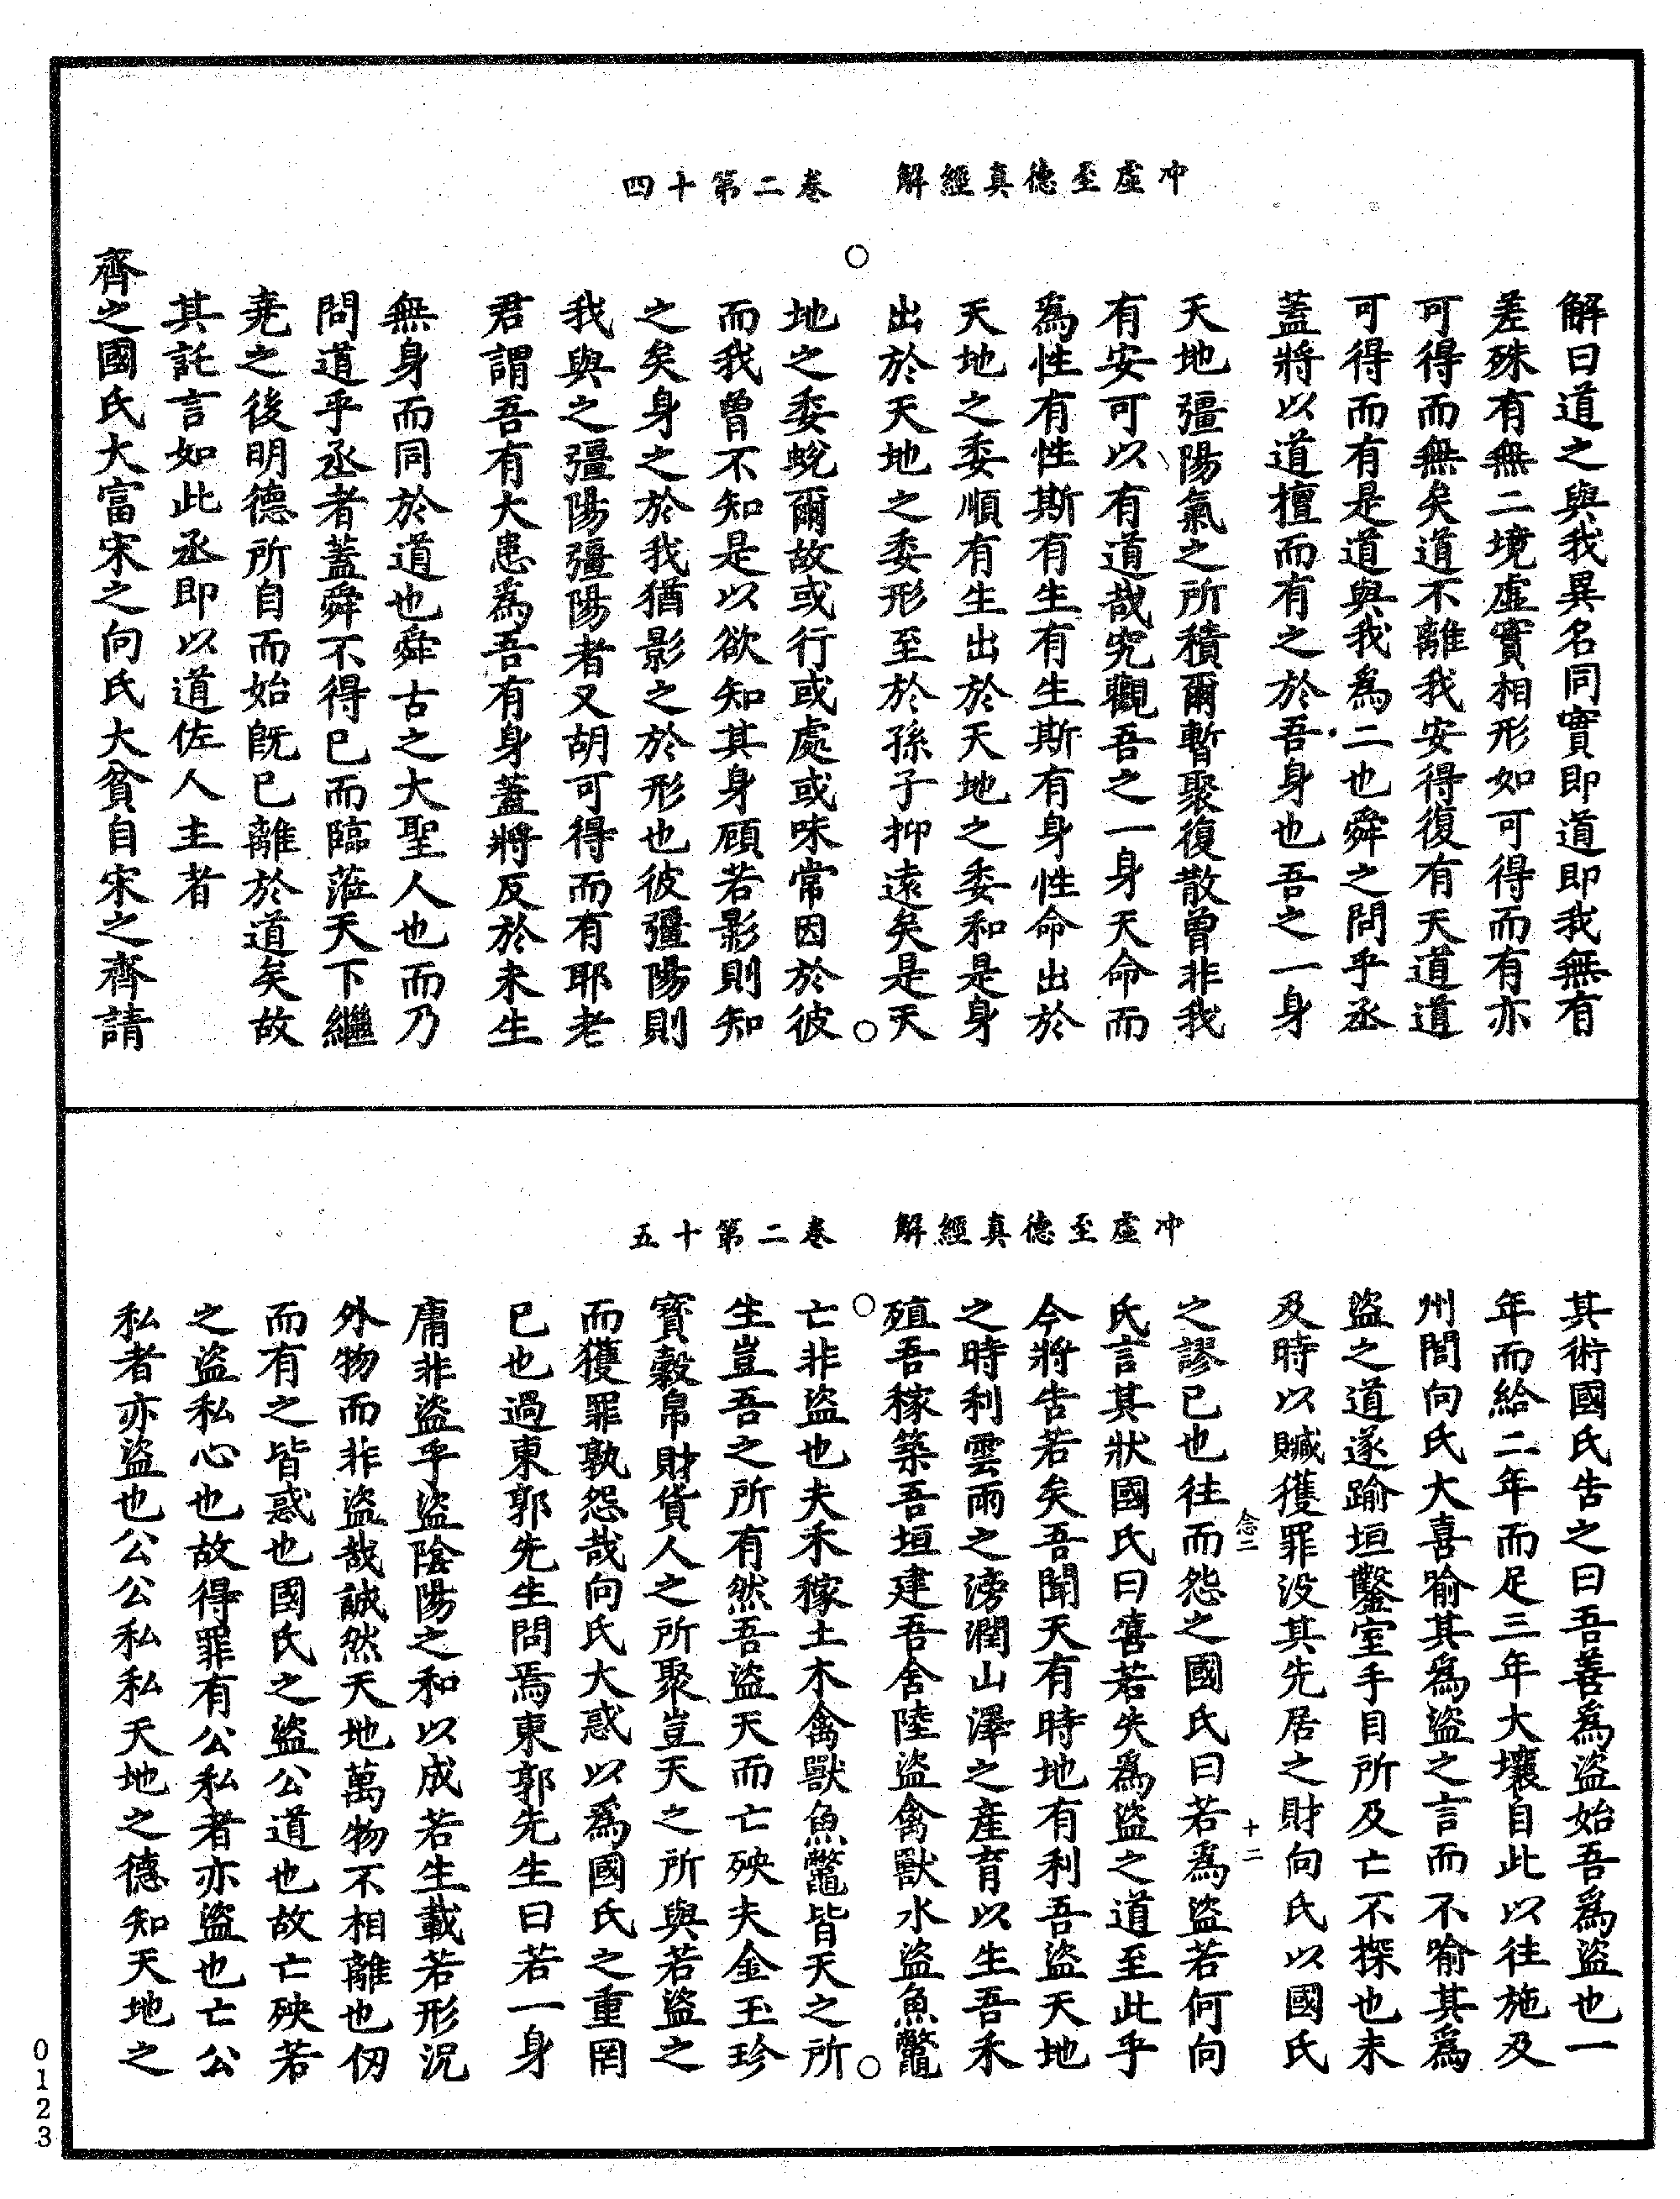 冲虛至德真經解　卷二第十四
解曰道之與我異名同實即道即我無有
差殊有無二境虛實相形如可得而有亦
可得而無矣道不離我安得復有天道道
可得而有是道與我為二也舜之問乎丞
蓋將以道擅而有之於吾身也吾之一身
天地彊陽氣之所積爾暫聚復散曾非我
有安可以有道哉究觀吾之一身天命而
為性有性斯有生有生斯有身性命出於
天地之委順有生出於天地之委和是身
出於天地之委形至於孫子抑遠矣是天
地之委蛻爾故或行或處或味常因於彼
而我曾不知是以欲知其身頋若影則知
之矣身之於我猶影之於形也彼彊陽則
我與之彊陽彊陽者又胡可得而有耶老
君謂吾有大患為吾有身蓋將反於未生
無身而同於道也舜古之大聖人也而乃
問道乎丞者蓋舜不得已而臨蒞天下繼
堯之後明德所自而始旣已離於道矣故
其託言如此丞即以道佐人主者
齊之國氏大富宋之向氏大貧自宋之齊請
冲虛至德真經解　卷二第十五
其術國氏告之曰吾善為盜始吾為盜也一
年而給二年而足三年大壤自此以往施及
州閭向氏大喜喻其為盜之言而不喻其為
盜之道遂踰垣鑿室手目所及亡不探也未
及時以贓獲罪没其先居之財向氏以國氏
之謬已也往而怨之國氏曰若為盜若何向
念二　十二
氏言其狀國氏曰嘻若失為盜之道至此乎
今將告若矣吾聞天有時地有利吾盜天地
之時利雲雨之滂潤山澤之產育以生吾禾
殖吾稼築吾垣建吾舍陸盜禽獸水盜魚鼈
亡非盜也夫禾稼土木禽獸魚鼈皆天之所
生豈吾之所有然吾盜天而亡殃夫金玉珍
寶穀帛財貨人之所聚豈天之所與若盜之
而獲罪孰怨哉向氏大惑以為國氏之重罔
已也過東郭先生問焉東郭先生曰若一身
庸非盜乎盜陰陽之和以成若生載若形況
外物而非盜哉誠然天地萬物不相離也仞
而有之皆惑也國氏之盜公道也故亡殃若
之盜私心也故得罪有公私者亦盜也亡公
私者亦盜也公公私私天地之德知天地之
0123